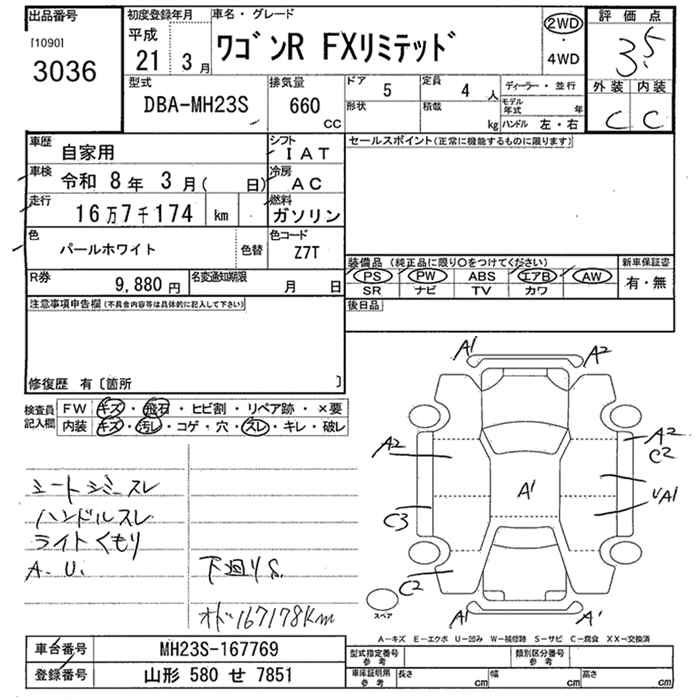 出品番号
[1090]
3036
初度登録年月
平成
21 3月
車名・グレード
ワゴンR FXリミテッド
2WD
・
4WD
評価点
3.5
外装 内装
C C
型式
DBA-MH23S
排気量
660
CC
ドア 5
形状
定員 4 人
積載 kg
ディーラー・並行
モデル年式 年
ハンドル 左・右
車歴 自家用
シフト IAT
車検 令和 8年 3月( 日)
冷房 AC
走行 16万7千174 km
燃料 ガソリン
色 パールホワイト 色替
色コード Z7T
R券 9,880円
名変通知期限 月 日
注意事項申告欄(不具合内容等は具体的に記入して下さい)
修復歴 有〔箇所 〕
セールスポイント(正常に機能するものに限ります)
装備品(純正品に限り○をつけてください)
PS PW ABS エアB AW
SR ナビ TV カワ
新車保証書
有・無
後日品
検査員記入欄
FW キズ・飛石・ヒビ割・リペア跡・×要
内装 キズ・汚レ・コゲ・穴・スレ・キレ・破レ
シートシミースレ
ハンドルスレ
ライトくもり
A.U.
下廻りS.
オド167178Km
A1 A2
A2
A2
C2
A1
UA1
C3
C2
A1 A1
スペア
A-キズ E-エクボ U-凹み W-補修跡 S-サビ C-腐食 XX-交換済
車台番号 MH23S-167769
登録番号 山形 580 せ 7851
型式指定番号 参考
類別区分番号 参考
車庫証明用 参考
長さ cm 幅 cm 高さ cm